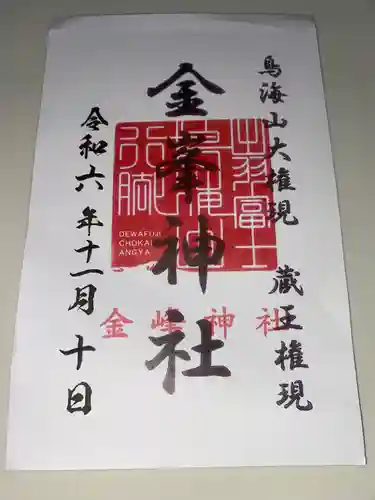 鳥海山大権現 蔵王権現
金峯神社
令和六年十一月十日
出羽富士
鳥海山
行脚
DEWAFUJI
CHOKAI
ANGYA
金峰神社